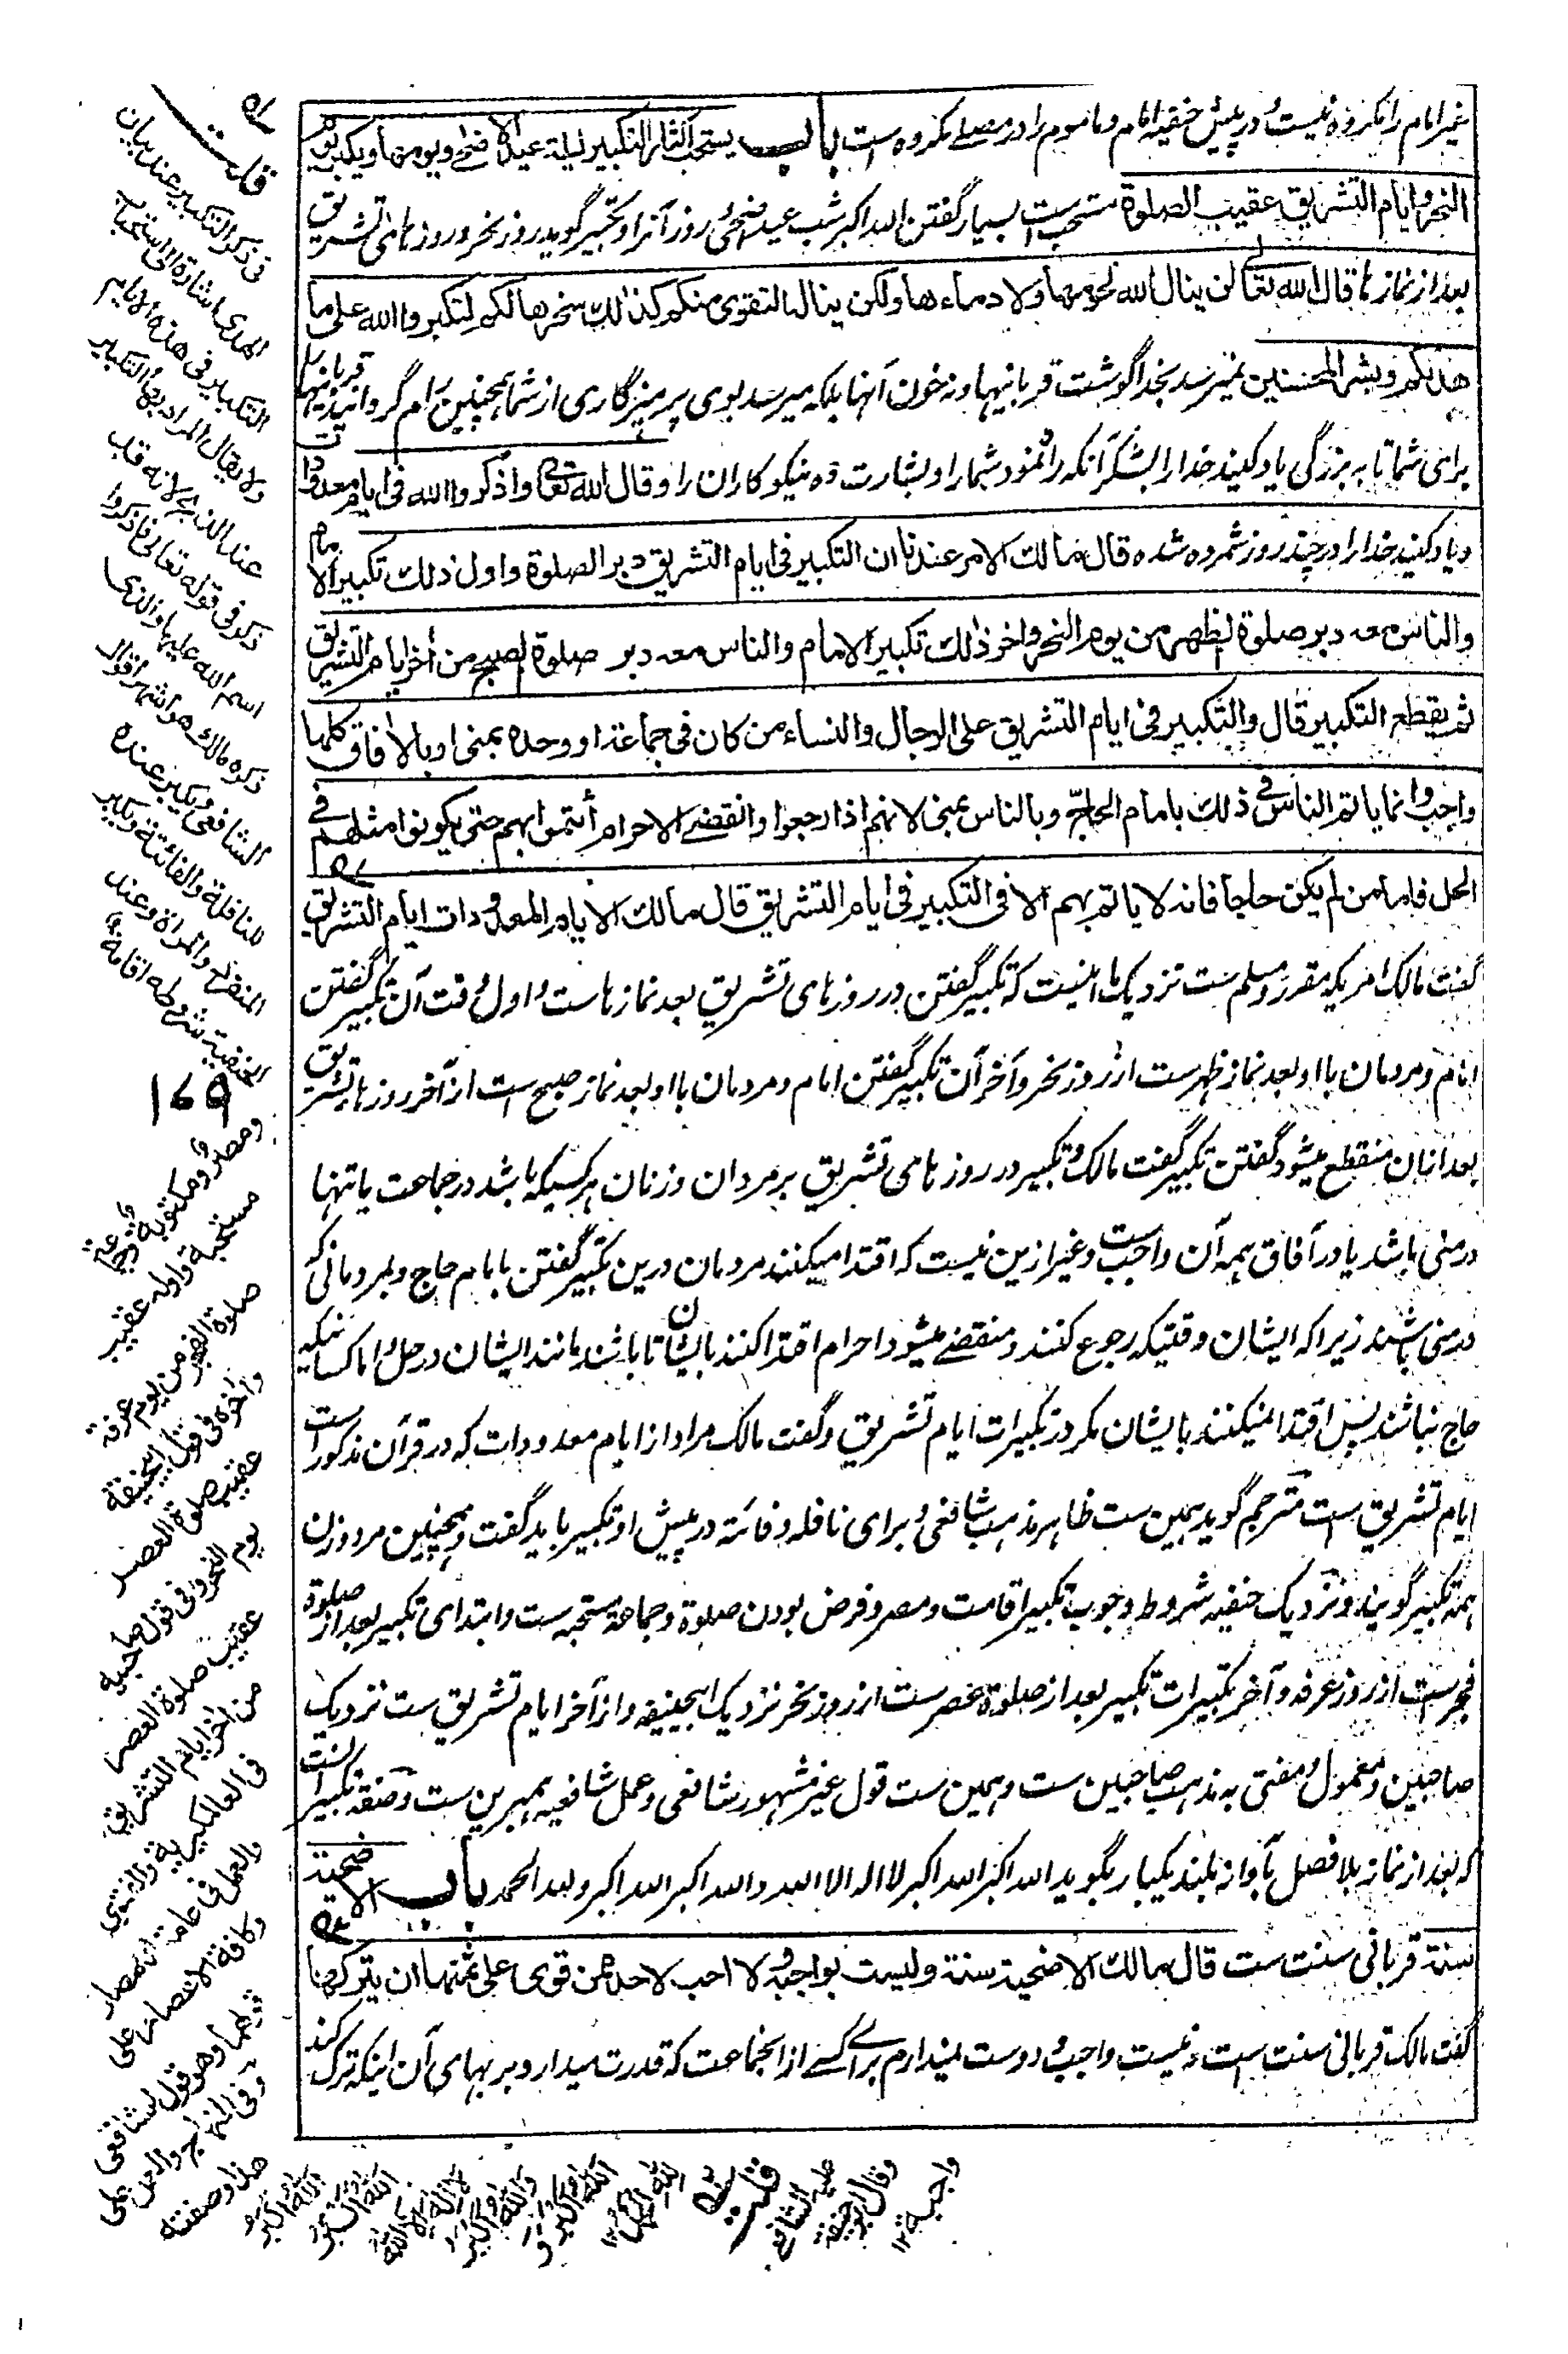 غیر امام را مکروه نیست و در پیش حنفیه امام و ماموم را در مصلے مکروه است باب یستحب اکثار التکبیر لیلة عید الاضحے ویومها ویکبر یوم
النحر وایام التشریق عقیب الصلوة مستحب است بسیار گفتن الله اکبر شب عید اضحی و روز آنرا و تکبیر گوید روز نحر و روزهای تشریق
بعد از نمازها قال الله تعالی لن ینال الله لحومها ولا دماءها ولکن یناله التقوی منکم کذلک سخرها لکم لتکبروا الله علی ما
هدلکم وبشر المحسنین نمیرسد بخدا گوشت قربانیها و نه خون آنها بلکه میرسد بوی پرهیزگاری از شما همچنین رام گردانید قربانیها
برای شما تا به بزرگی یاد کنید خدا را بشکر آنکه راه نمود شما را و بشارت ده نیکوکاران را وقال الله تعالی واذکروا الله فی ایام معدودات
و یاد کنید خدا را در چند روز شمرده شده قال مالک الامر عندنا ان التکبیر فی ایام التشریق دبر الصلوة واول ذلک تکبیر الامام
والناس معه دبر صلوة الظهر من یوم النحر واخر ذلک تکبیر الامام والناس معه دبر صلوة الصبح من أخر ایام التشریق
ثم یقطع التکبیر قال والتکبیر فی ایام التشریق علی الرجال والنساء من کان فی جماعة او وحده بمنی او بالافاق کلها
واجب وانما یاتم الناس فی ذلک بامام الحاج وبالناس بمنی لانهم اذا رجعوا وانقضے الاحرام أئتموا بهم حتی یکونوا مثلهم فی
الحل فاما من لم یکن حاجا فانه لا یاتم بهم الا فی التکبیر فی ایام التشریق قال مالک الایام المعدودات ایام التشریق
گفت مالک امریکه مقرر و مسلم ست نزدیک ما اینست که تکبیر گفتن در روزهای تشریق بعد نمازها ست و اول وقت آن تکبیر گفتن
امام و مردمان با او بعد نماز ظهر ست از روز نحر و آخر آن تکبیر گفتن امام و مردمان با او بعد نماز صبح است از آخر روزهای تشریق
بعد ازان منقطع میشود گفتن تکبیر گفت مالک و تکبیر در روزهای تشریق بر مردان و زنان هر کسیکه باشد در جماعت یا تنها
در منی باشد یا در آفاق همه آن واجب ست و غیر ازین نیست که اقتدا میکنند مردمان درین تکبیر گفتن با امام حاج و بمردمانی که
در منی باشند زیرا که ایشان وقتیکه رجوع کنند و منقضے میشود احرام اقتدا کنند بایشان تا باشند مانند ایشان در حل و اما کسانیکه
حاج نباشند پس اقتدا نمیکنند بایشان مگر در تکبیرات ایام تشریق و گفت مالک مراد از ایام معدودات که در قرآن مذکور است
ایام تشریق است مترجم گوید همین ست ظاهر مذهب شافعی و برای نافله و فائته در پیش او تکبیر باید گفت و همچنین مرد و زن
همه تکبیر گویند و نزدیک حنفیه شروط وجوب تکبیر اقامت و مصر و فرض بودن صلوة و جماعة مستحبه ست و ابتدای تکبیر بعد از صلوة
فجر ست از روز عرفه و آخر تکبیرات تکبیر بعد از صلوة عصر ست از روز نحر نزدیک ابیحنیفه و از آخر ایام تشریق ست نزدیک
صاحبین و معمول و مفتی به مذهب صاحبین ست و همین ست قول غیر مشهور شافعی و عمل شافعیه بهمین ست و صفة تکبیر آنست
که بعد از نماز بلا فصل بآواز بلند یکبار بگوید الله اکبر الله اکبر لا اله الا الله والله اکبر الله اکبر ولله الحمد باب الاضحیة
سنة قربانی سنت ست قال مالک الاضحیة سنة ولیست بواجبة ولا احب لاحد ممن قوی علی ثمنها ان یترکها
گفت مالک قربانی سنت ست و نیست واجب و دوست نمیدارم براے کسے از انجماعت که قدرت میدارد بر بهای آن اینکه ترک کند
قلت
فی ذکر التکبیر عند بیان
الهدی اشارة الی استحباب
التکبیر فی هذه الایام
ولا یقال المراد بها التکبیر
عند الذبح لانه قد
ذکر فی قوله تعالی فاذکروا
اسم الله علیها والذی
ذکره مالک هو اشهر اقوال
الشافعی ویکبر عنده
للنافلة والفائتة ویکبر
المنفرد والمراة وعند
الحنفیة شروطه اقامة
۱۶۹
ومصر ومکتوبة وجماعة
مستحبة واوله عقیب
صلوة الفجر من یوم عرفة
وأخره فی قول ابیحنیفة
عقیب صلوة العصر
یوم النحر وفی قول صاحبیه
عقیب صلوة العصر
من اخر ایام التشریق
فی العالمگیریة والفتوی
والعمل فی عامة الامصار
وکافة الاعصار علی
قولهما وهو قول للشافعی
وفی المنهاج والعمل علی
هذا وصفته
الله اکبر
الله اکبر
لا اله الا الله
والله اکبر
الله اکبر و
لله الحمد ۱۲
قلت
علیه الشافعی
وقال ابوحنیفة
واجبة ۱۲